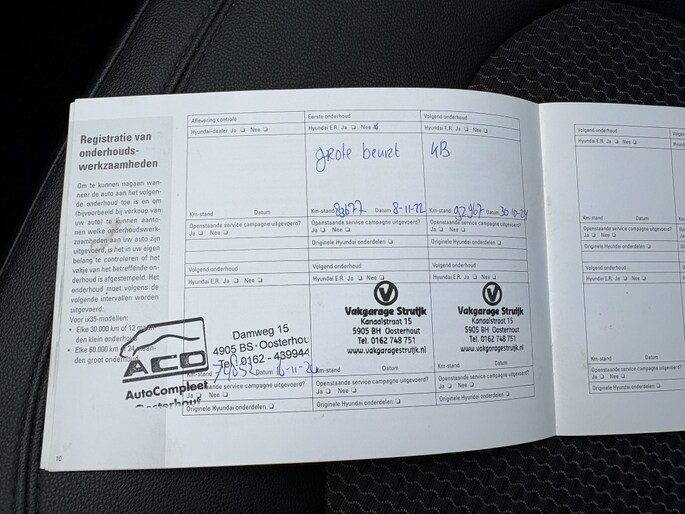 Registratie van
onderhouds-
werkzaamheden
Om te kunnen nagaan wan-
neer de auto aan het volgen-
de onderhoud toe is en om
(bijvoorbeeld bij verkoop van
uw auto) te kunnen aanto-
nen welke onderhoudswerk-
zaamheden aan uw auto zijn
uitgevoerd, is het in uw eigen
belang te controleren of het
vakje van het betreffende on-
derhoud is afgestempeld. Het
onderhoud moet volgens de
volgende intervallen worden
uitgevoerd:
Voor ix35-modellen:
• Elke 30.000 km of 12
den klein onderhoud
• Elke 60.000 km of 24
den groot onderhoud
10
Aflevering controle
Hyundai-dealer Ja ❏ Nee ❏
Km-stand Datum
Openstaande service campagne uitgevoerd?
Ja ❏ Nee ❏
Eerste onderhoud
Hyundai E.R. Ja ❏ Nee
grote beurt
Km-stand 83677 Datum 8-11-22
Openstaande service campagne uitgevoerd?
Ja ❏ Nee ❏
Originele Hyundai onderdelen ❏
Volgend onderhoud
Hyundai E.R. Ja ❏ Nee ❏
Km-stand 92967 Datum 30-10-24
Openstaande service campagne uitgevoerd?
Ja ❏ Nee ❏
Originele Hyundai onderdelen ❏
Volgend onderhoud
Hyundai E.R. Ja ❏ Nee ❏
ACO
AutoCompleet
Oosterhout
Damweg 15
4905 BS - Oosterhou
Tel 0162 - 439944
Km-stand Datum
Openstaande service campagne uitgevoerd?
Ja ❏ Nee ❏
Originele Hyundai onderdelen ❏
Volgend onderhoud
Hyundai E.R. Ja ❏ Nee ❏
Vakgarage Struijk
Kanaalstraat 15
5905 BH Oosterhout
Tel. 0162 748 751
www.vakgaragestruijk.nl
Km-stand Datum
Openstaande service campagne uitgevoerd?
Ja ❏ Nee ❏
Originele Hyundai onderdelen ❏
Volgend onderhoud
Hyundai E.R. Ja ❏ Nee ❏
Vakgarage Struijk
Kanaalstraat 15
5905 BH Oosterhout
Tel. 0162 748 751
www.vakgaragestruijk.nl
Km-stand Datum
Openstaande service campagne uitgevoerd?
Ja ❏ Nee ❏
Originele Hyundai onderdelen ❏
Volgend onderhoud
Hyundai E.R. Ja ❏ Nee ❏
Km-stand Datum
Openstaande service campagne uitgevoerd?
Ja ❏ Nee ❏
Originele Hyundai onderdelen ❏
Volgend onderhoud
Hyundai E.R. Ja ❏ Nee ❏
Km-stand Datum
Openstaande service campagne uitgevoerd?
Ja ❏ Nee ❏
Originele Hyundai onderdelen ❏